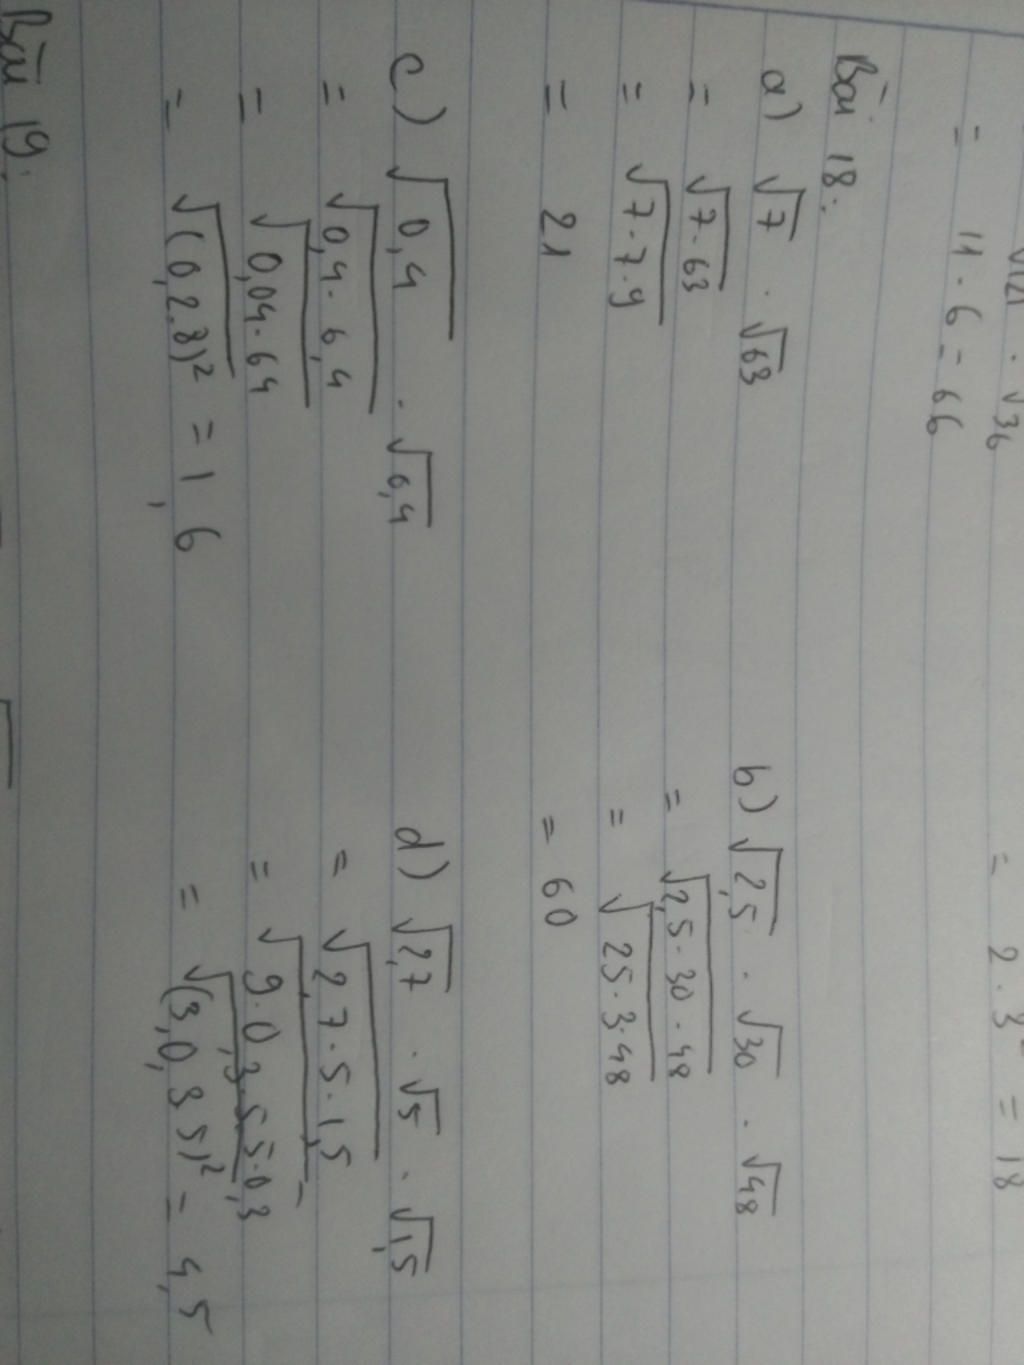 √121 . √36
= 11 . 6 = 66
= 2 . 3² = 18
Bài 18:
a) √7 . √63
= √7.63
= √7.7.9
= 21
b) √2,5 . √30 . √48
= √2,5.30.48
= √25.3.48
= 60
c) √0,4 . √6,4
= √0,4.6,4
= √0,04.64
= √(0,2.8)² = 1,6
d) √2,7 . √5 . √1,5
= √2,7.5.1,5
= √9.0,3.5.5.0,3
= √(3.0,3.5)² = 4,5
Bài 19: